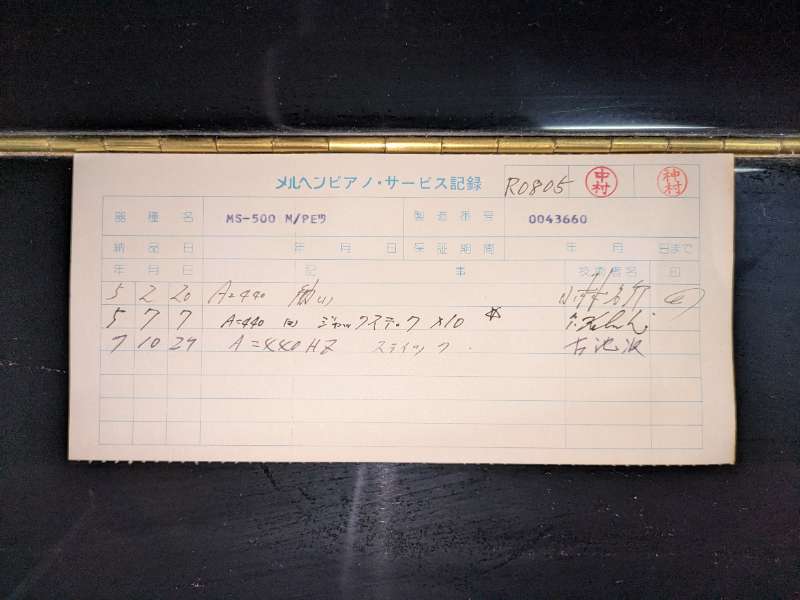 メルヘンピアノ・サービス記録 R0805 中村 神村
器種名 MS-500 M/PEウ 製造番号 0043660
納品日 年 月 日 保証期間 年 月 日まで
年 月 日 記 事 技術者名 印
5 2 20 A=440
5 7 7 A=440 ジャックスティック ×10
7 10 24 A=440HZ スティック